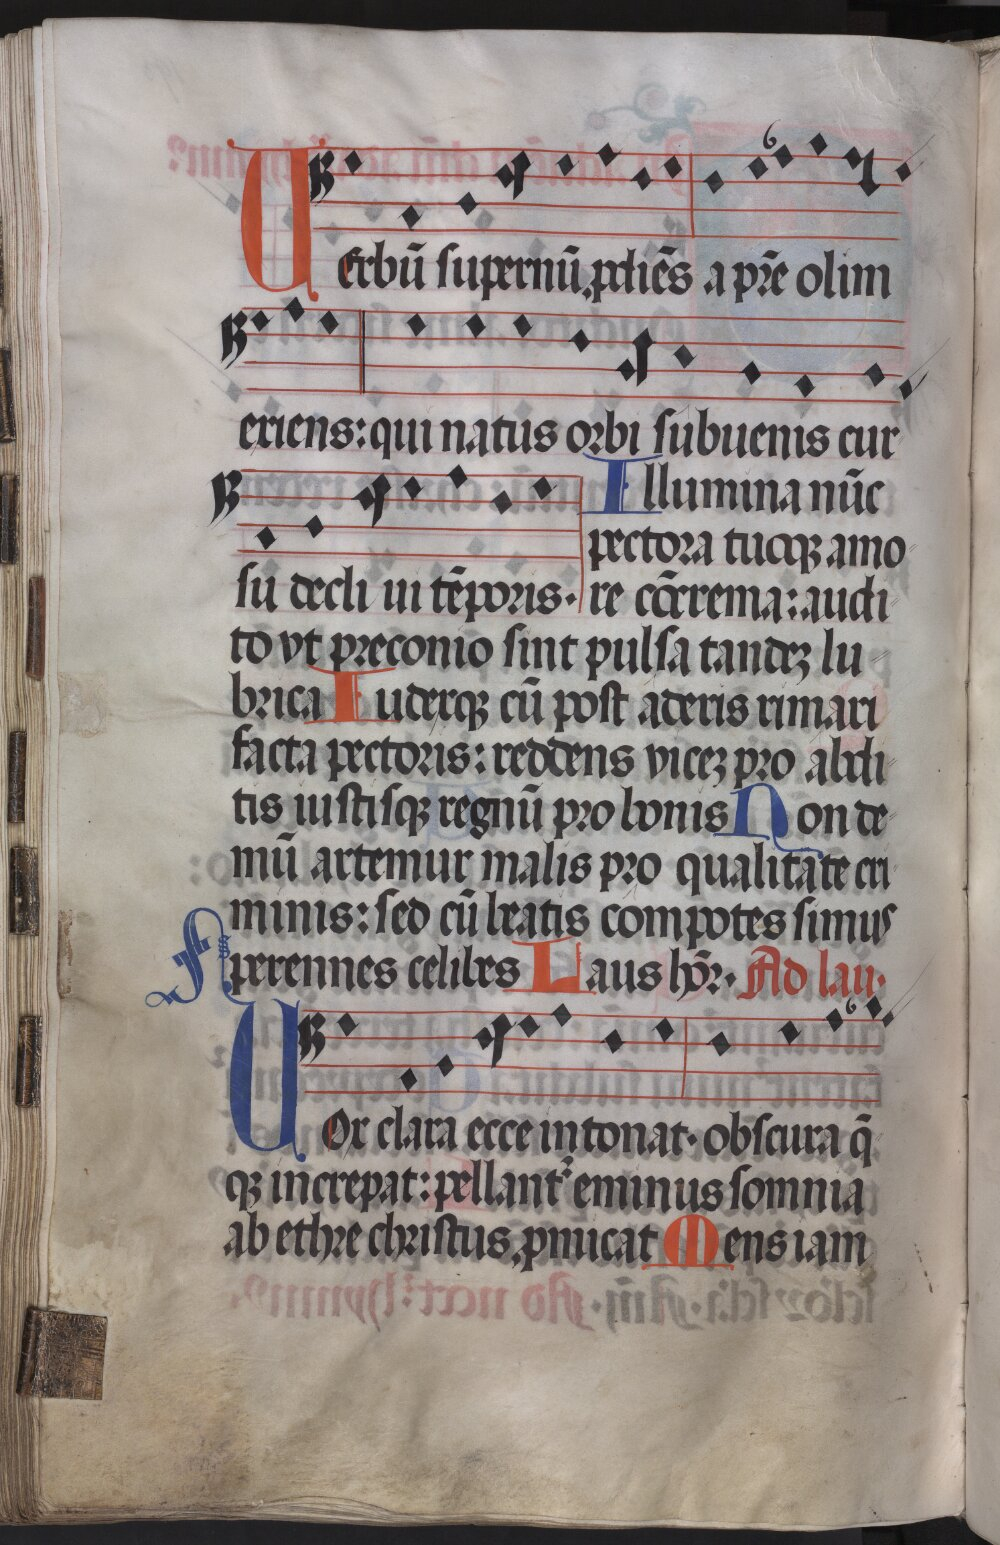 Uerbū supernū ꝓdiēs a pr̄e olim
exiens: qui natus orbi subuenis cur
su decli ui tēporis.
Illumina nūc
pectora tuoqꝫ amo
re cōcrema: audi
to vt preconio sint pulsa tandeꝫ lu
brica Iudexqꝫ cū post aderis rimari
facta pectoris: reddens viceꝫ pro abdi
tis iustisqꝫ regnū pro bonis Non de
mū artemur malis pro qualitate cri
minis: sed cū beatis compotes simus
perennes celibes Laus hōr. Ad lau.
Uox clara ecce intonat. obscura q̄
qꝫ increpat: pellant᷑ eminus somnia
ab ethre christus ꝓmicat Mens iam